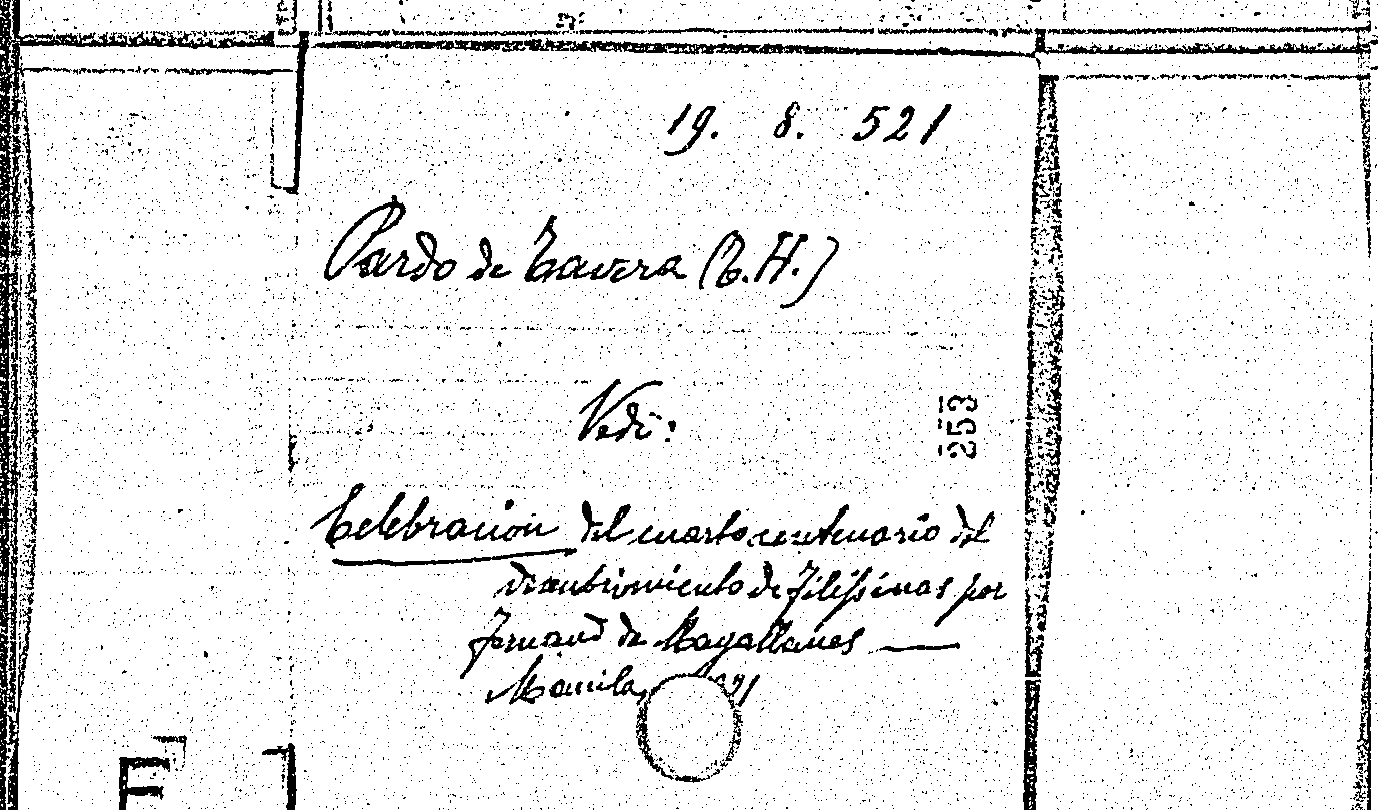 19. 8. 521
Pardo de Tavera (T.H.)
Vedi:
253
Celebracion del cuarto centenario del
descubrimiento de Filippinas por
Fernand de Magallanes —
Manila,